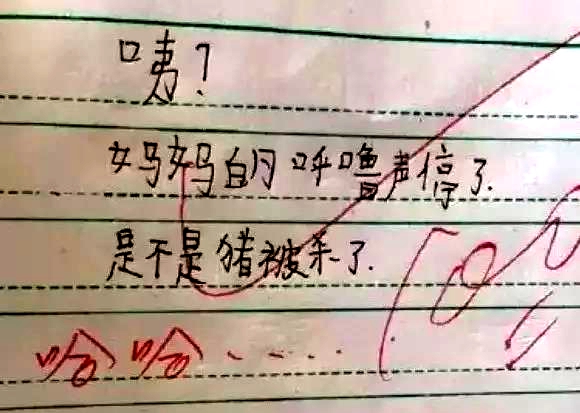 咦?
妈妈的呼噜声停了.
是不是猪被杀了.
哈哈.....